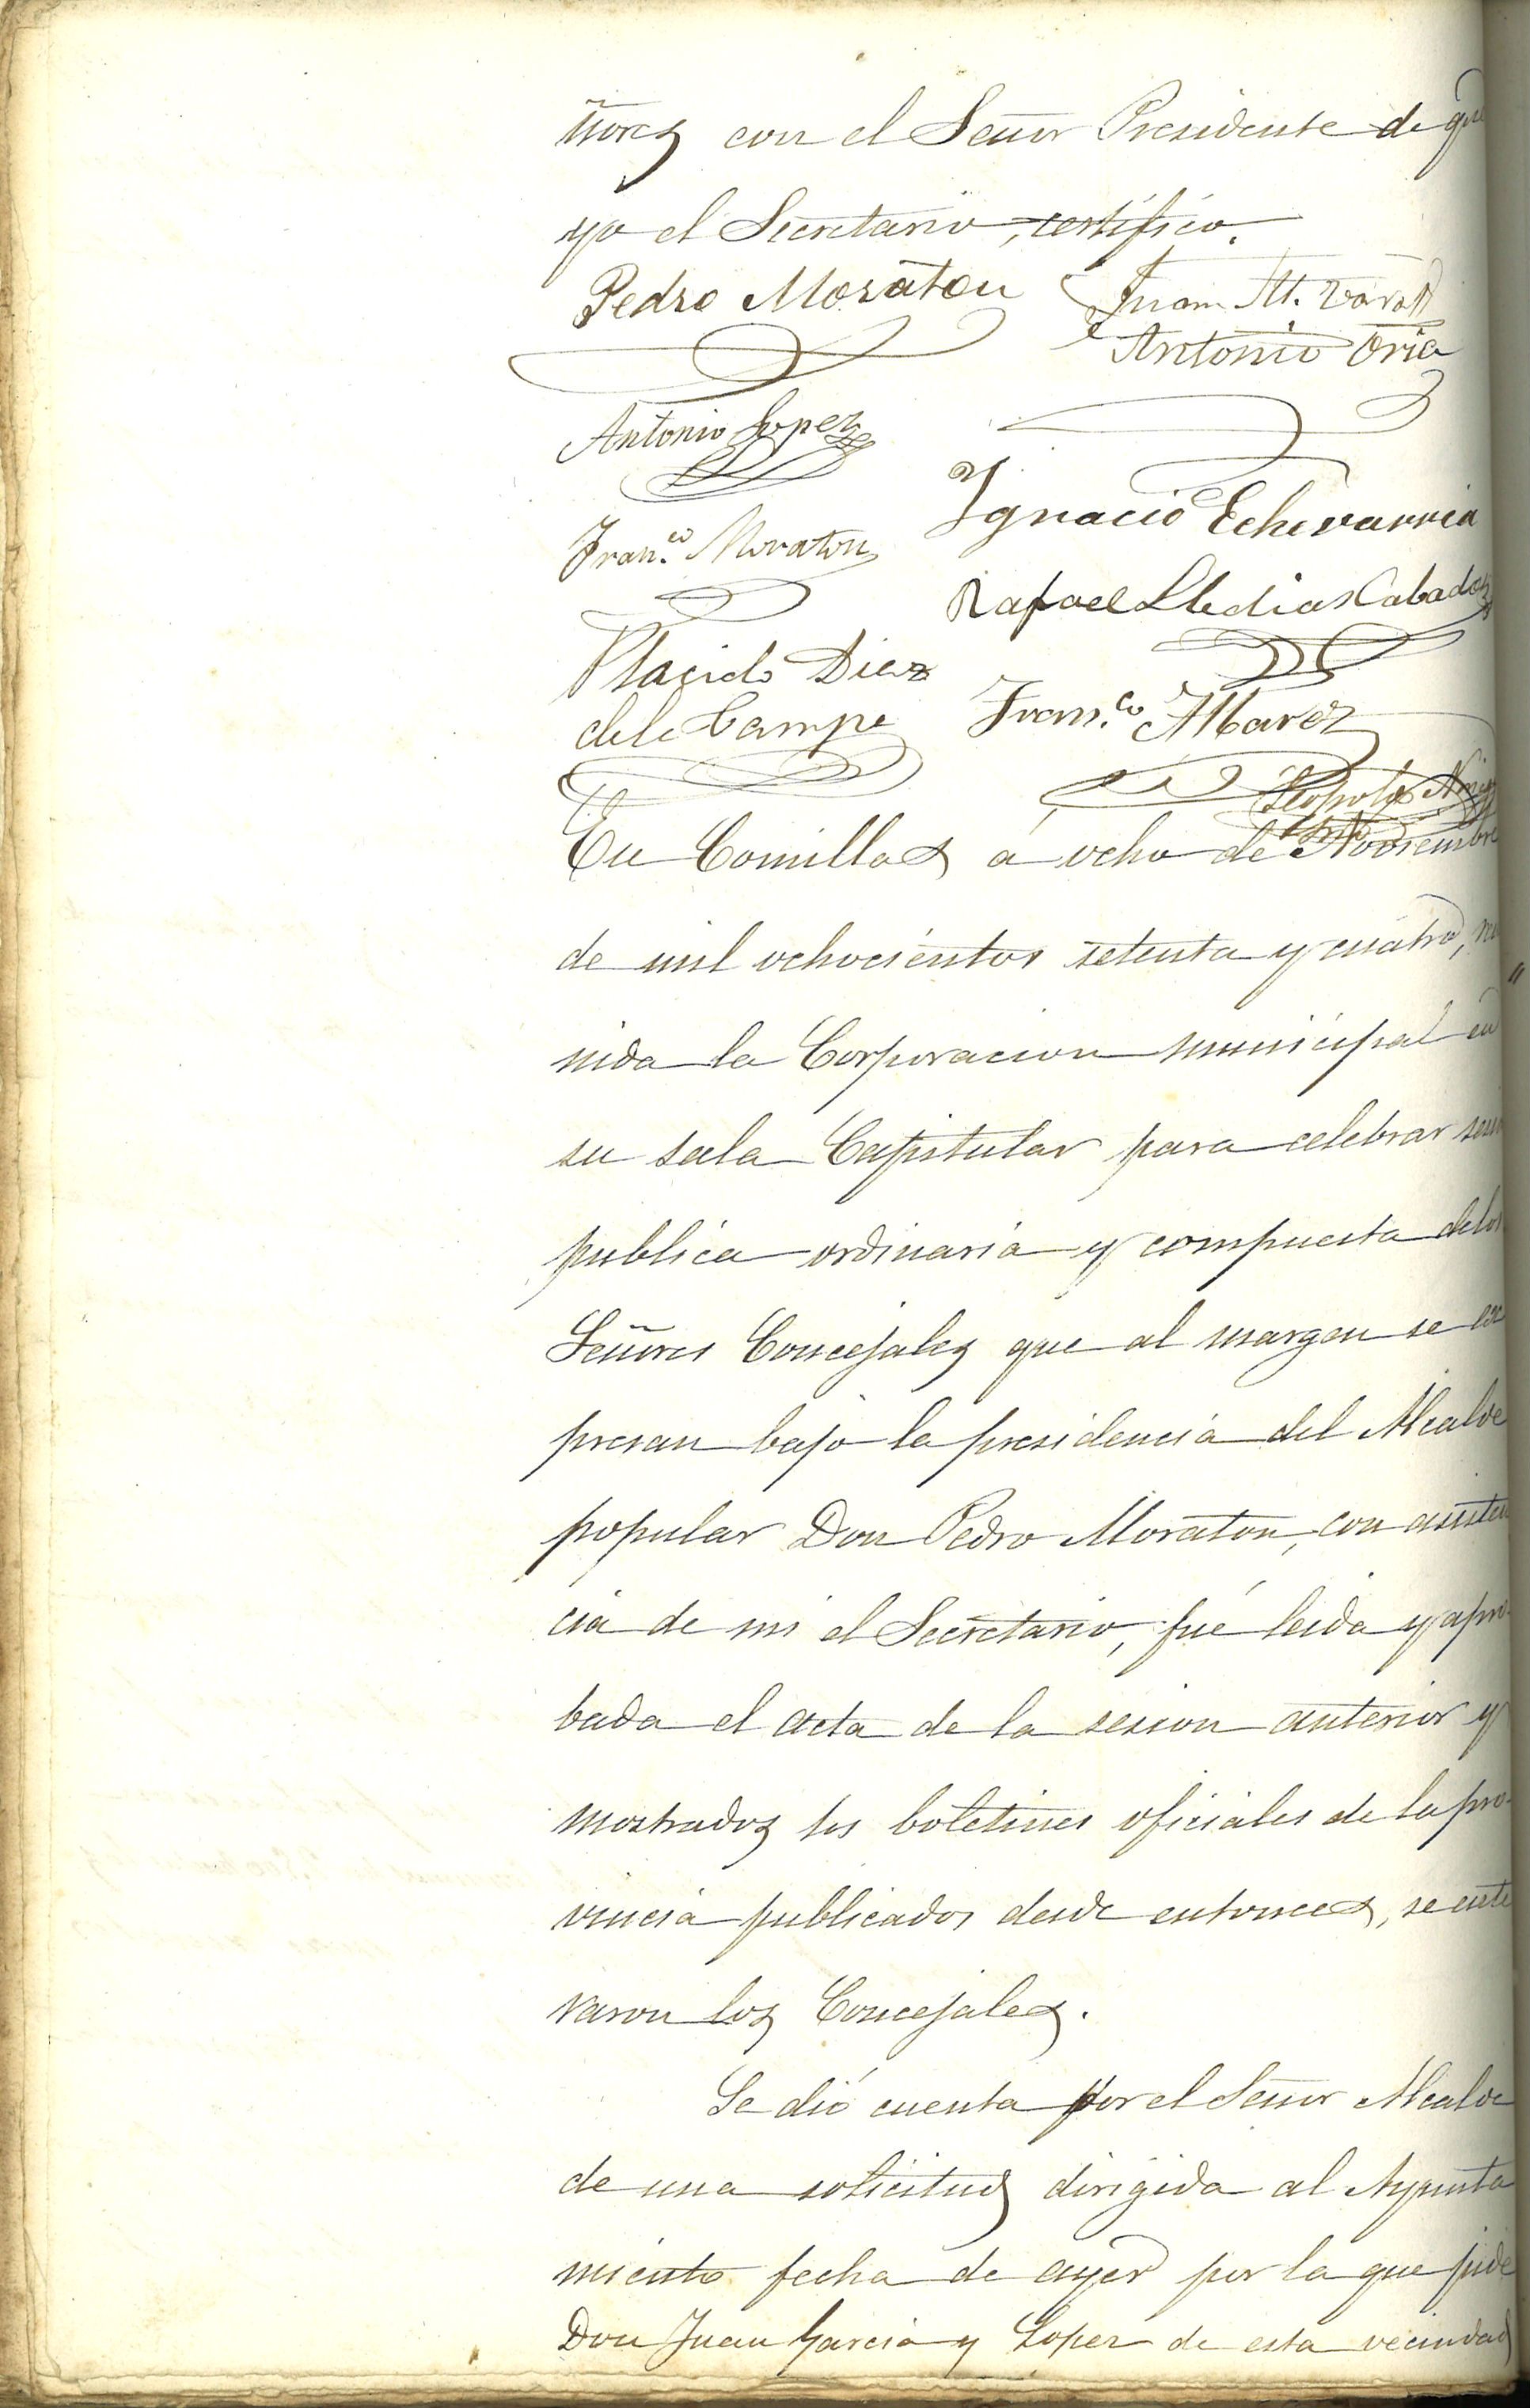 ñores con el Señor Presidente de que
yo el Secretario, certifico.
Pedro Moraton Juan M.
Antonio Oria
Antonio Lopez
Ignacio Echevarria
Fran.co Moraton
Rafael Lledias Cabado
Placido Diez
dele Campo Fran.co Alvarez
Leopoldo
En Comillas á ocho de Noviembre
de mil ochocientos setenta y cuatro, reu
nida la Corporacion municipal en
su sala Capitular para celebrar sesion
publica ordinaria y compuesta de los
Señores Concejales que al margen se ex
presan bajo la presidencia del Alcalde
popular Don Pedro Moraton, con asisten
cia de mi el Secretario, fué leida y apro-
bada el acta de la sesion anterior y
mostrados los boletines oficiales de la pro-
vincia publicados desde entonces, se ente
raron los Concejales.
Se dió cuenta por el Señor Alcalde
de una solicitud dirigida al Ayunta
miento fecha de ayer por la que pide
Don Juan Garcia y Lopez de esta vecindad